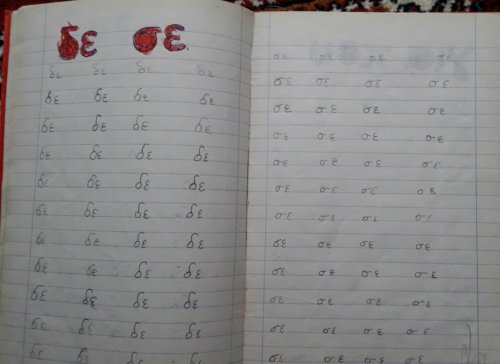 δε σε
δε δε δε δε
δε δε δε δε
δε δε δε δε
δε δε δε δε
δε δε δε δε
δε δε δε δε
δε δε δε δε
δε δε δε δε
δε δε δε δε
δε δε δε δε
δε δε δε δε
σε σε σε σε
σε σε σε σε
σε σε σε σε
σε σε σε σε
σε σε σε σε
σε σε σε σε
σε σε σε σε
σε σε σε σε
σε σε σε σε
σε σε σε σε
σε σε σε σε
σε σε σε σε